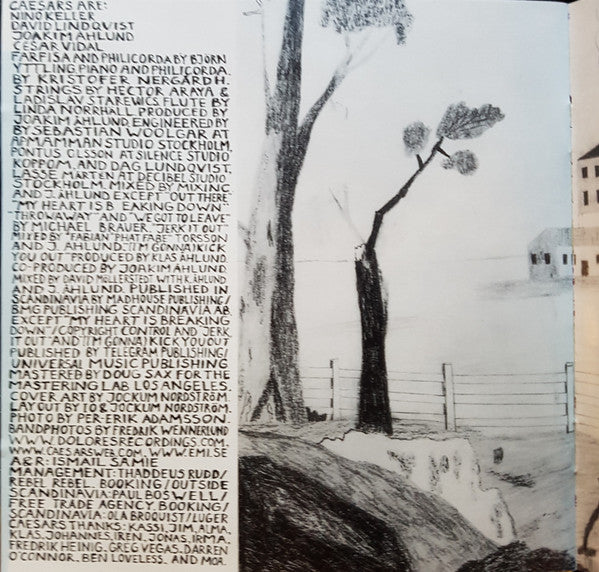 CAESARS ARE:
NINO KELLER
DAVID LINDQVIST
JOAKIM AHLUND
CESAR VIDAL
FARFISA AND PHILICORDA BY BJORN
YTTLING PIANO AND PHILICORDA.
BY KRISTOFER NERGÅRDH.
STRINGS BY HECTOR ARAYA &
LADISLAV STAREWICS FLUTE BY
LINDA NORRHALL PRODUCED BY
JOAKIM AHLUND ENGINEERED BY
BY SEBASTIAN WOOLGAR AT
APMAMMAN STUDIO STOCKHOLM.
PONTUS OLSSON AT SILENCE STUDIO
KOPPOM. AND DAG LUNDQVIST.
LASSE MÅRTEN AT DECIBEL STUDIO
STOCKHOLM. MIXED BY MIXINC.
AND J. ÅHLUND EXCEPT "OUT THERE"
"MY HEART IS B EAKING DOWN"
"THROWAWAY" AND "WE GOT TO LEAVE"
BY MICHAEL BRAUER. "JERK IT OUT"
MIXED BY "FABIAN "PHAT FABE" TORSSON
AND J. AHLUND. "(I'M GONNA) KICK
YOU OUT" PRODUCED BY KLAS ÅHLUND.
CO-PRODUCED BY JOAKIM ÅHLUND.
MIXED BY DAVID MÖLLERSTEDT WITH K. ÅHLUND
AND J. ÅHLUND. PUBLISHED IN
SCANDINAVIA BY MADHOUSE PUBLISHING/
BMG PUBLISHING SCANDINAVIA AB.
EXCEPT "MY HEART IS BREAKING
DOWN"/COPYRIGHT CONTROL AND JERK
IT OUT" AND "(I'M GONNA) KICK YOU OUT
PUBLISHED BY TELEGRAM PUBLISHING/
UNIVERSAL MUSIC PUBLISHING
MASTERED BY DOUG SAX FOR THE
MASTERING LAB LOS ANGELES.
COVER ART BY JOCKUM NORDSTRÖM.
LAY OUT BY IO & JOCKUM NORDSTRÖM.
PHOTO BY PER-ERIK ADAMSSON.
BANDPHOTOS BY FREDRIK WENNERLUND
WWW.DOLORESRECORDINGS.COM.
WWW.CAESARSWEB.COM. WWW.EMI.SE
A&R: ISMAIL SAMIE
MANAGEMENT: THADDEUS RUDD/
REBEL REBEL. BOOKING/OUTSIDE
SCANDINAVIA: PAUL BOSWELL/
FREE TRADE AGENCY. BOOKING/
SCANDINAVIA: OLA BROQUIST/LUGER
CAESARS THANKS: KASSI, JIM, ALMA,
KLAS, JOHANNES, IREN, JONAS, IRMA,
FREDRIK HEINIG, GREG VEGAS, DARREN
O'CONNOR, BEN LOVELESS, AND MOA.